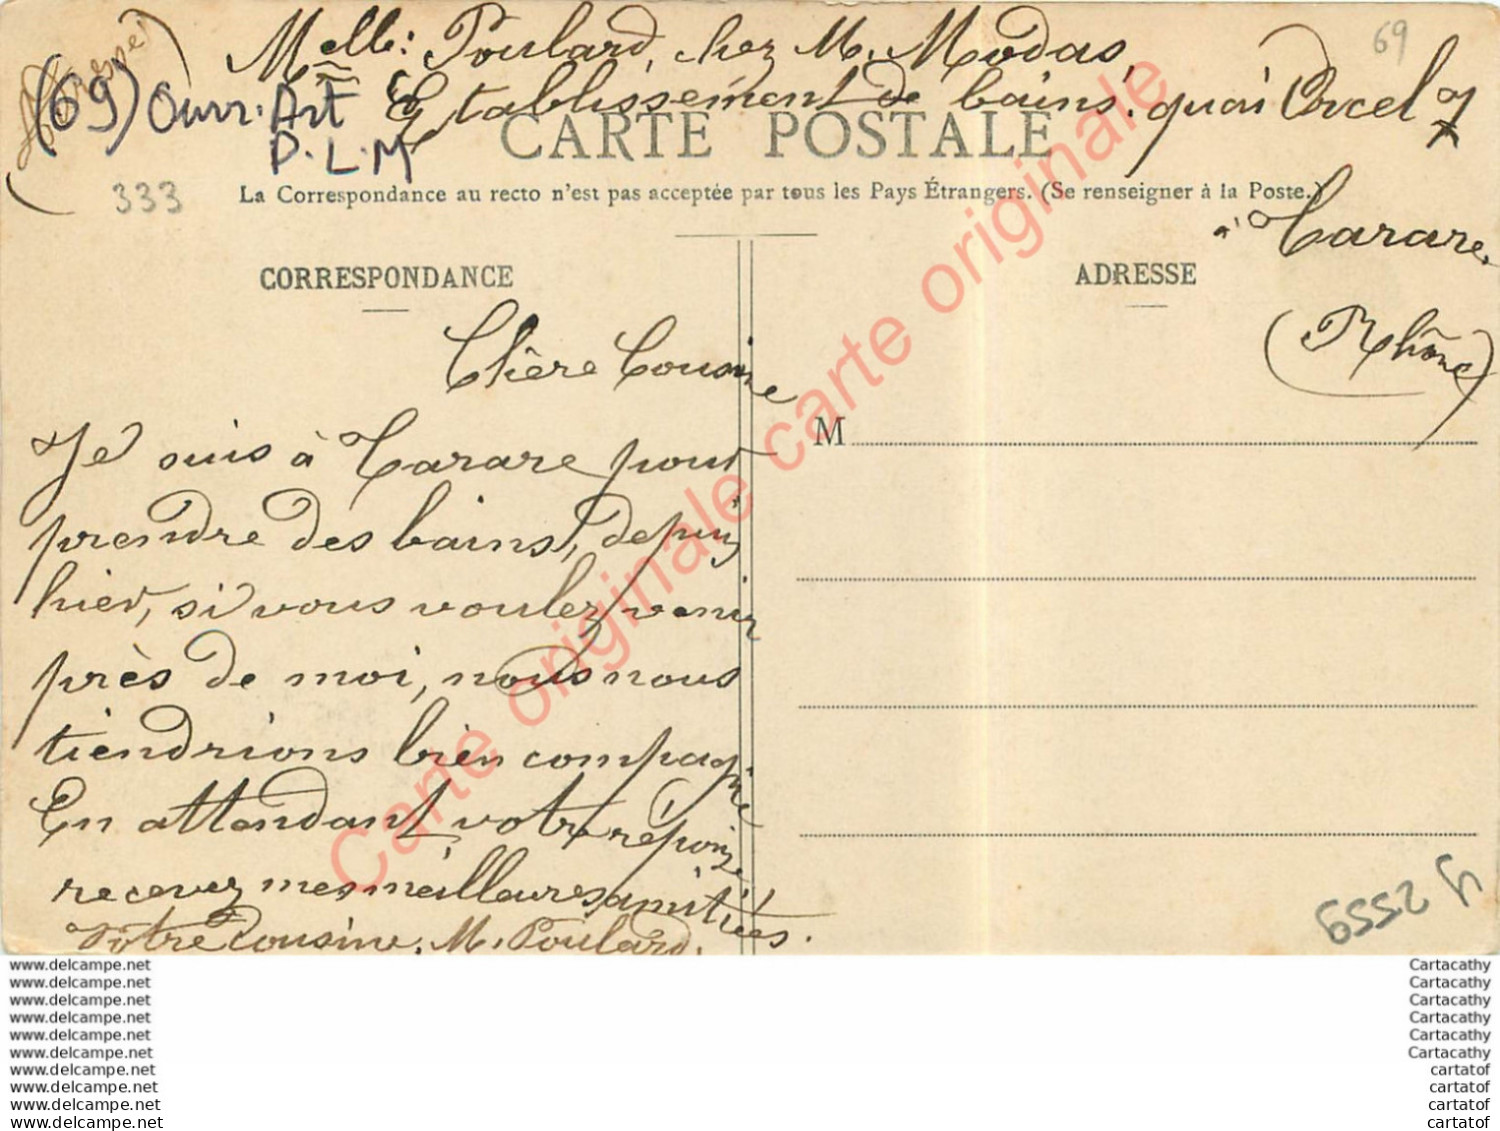 Melle: Poulard, chez M. Modas,
Etablissement de bains. quai Orcel 7
(69) Ouvr. Art
P.L.M
69
333
CARTE POSTALE
La Correspondance au recto n'est pas acceptée par tous les Pays Étrangers. (Se renseigner à la Poste.)
à Tarare.
(Rhône)
CORRESPONDANCE
ADRESSE
M
Chère Cousine
Je suis à Tarare pour
prendre des bains, depuis
hier, si vous voulez venir
près de moi, nous nous
tiendrions bien compagnie
En attendant votre réponse
recevez mes meilleures amitiées.
Votre Cousine. M. Poulard.
Carte originale carte originale carte originale
y 2559
www.delcampe.net
www.delcampe.net
www.delcampe.net
www.delcampe.net
www.delcampe.net
www.delcampe.net
www.delcampe.net
www.delcampe.net
www.delcampe.net
www.delcampe.net
Cartacathy
Cartacathy
Cartacathy
Cartacathy
Cartacathy
Cartacathy
cartatof
cartatof
cartatof
cartatof